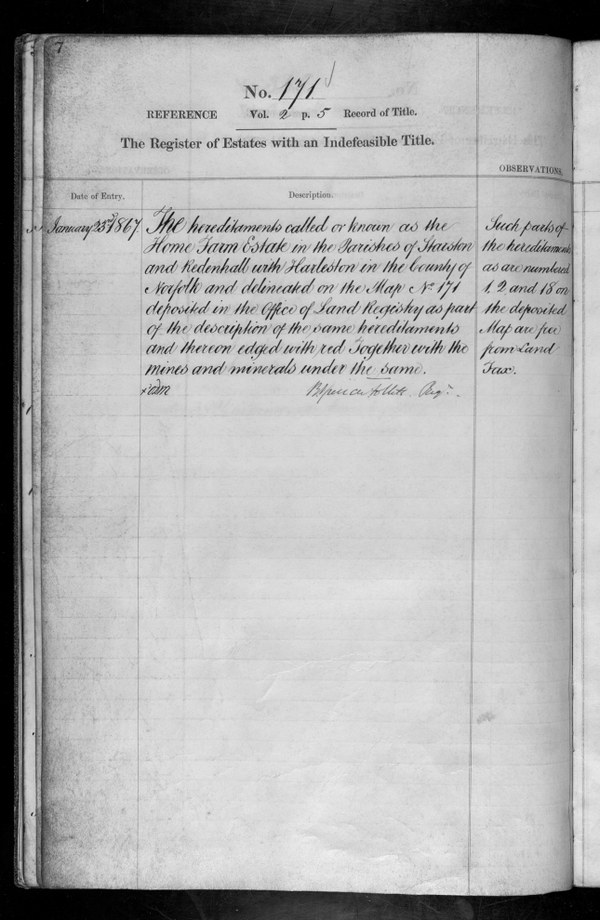 7
No. 171
REFERENCE Vol. 2 p. 5 Record of Title.
The Register of Estates with an Indefeasible Title.
OBSERVATIONS.
Date of Entry.
Description.
January 23rd 1867
The hereditaments called or known as the
Home Farm Estate in the Parishes of Starston
and Redenhall with Harleston in the County of
Norfolk and delineated on the Map No 171
deposited in the Office of Land Registry as part
of the description of the same hereditaments
and thereon edged with red Together with the
mines and minerals under the same.
Such parts of
the hereditaments
as are numbered
1, 2 and 18 on
the deposited
Map are free
from Land
Tax.
Regr.